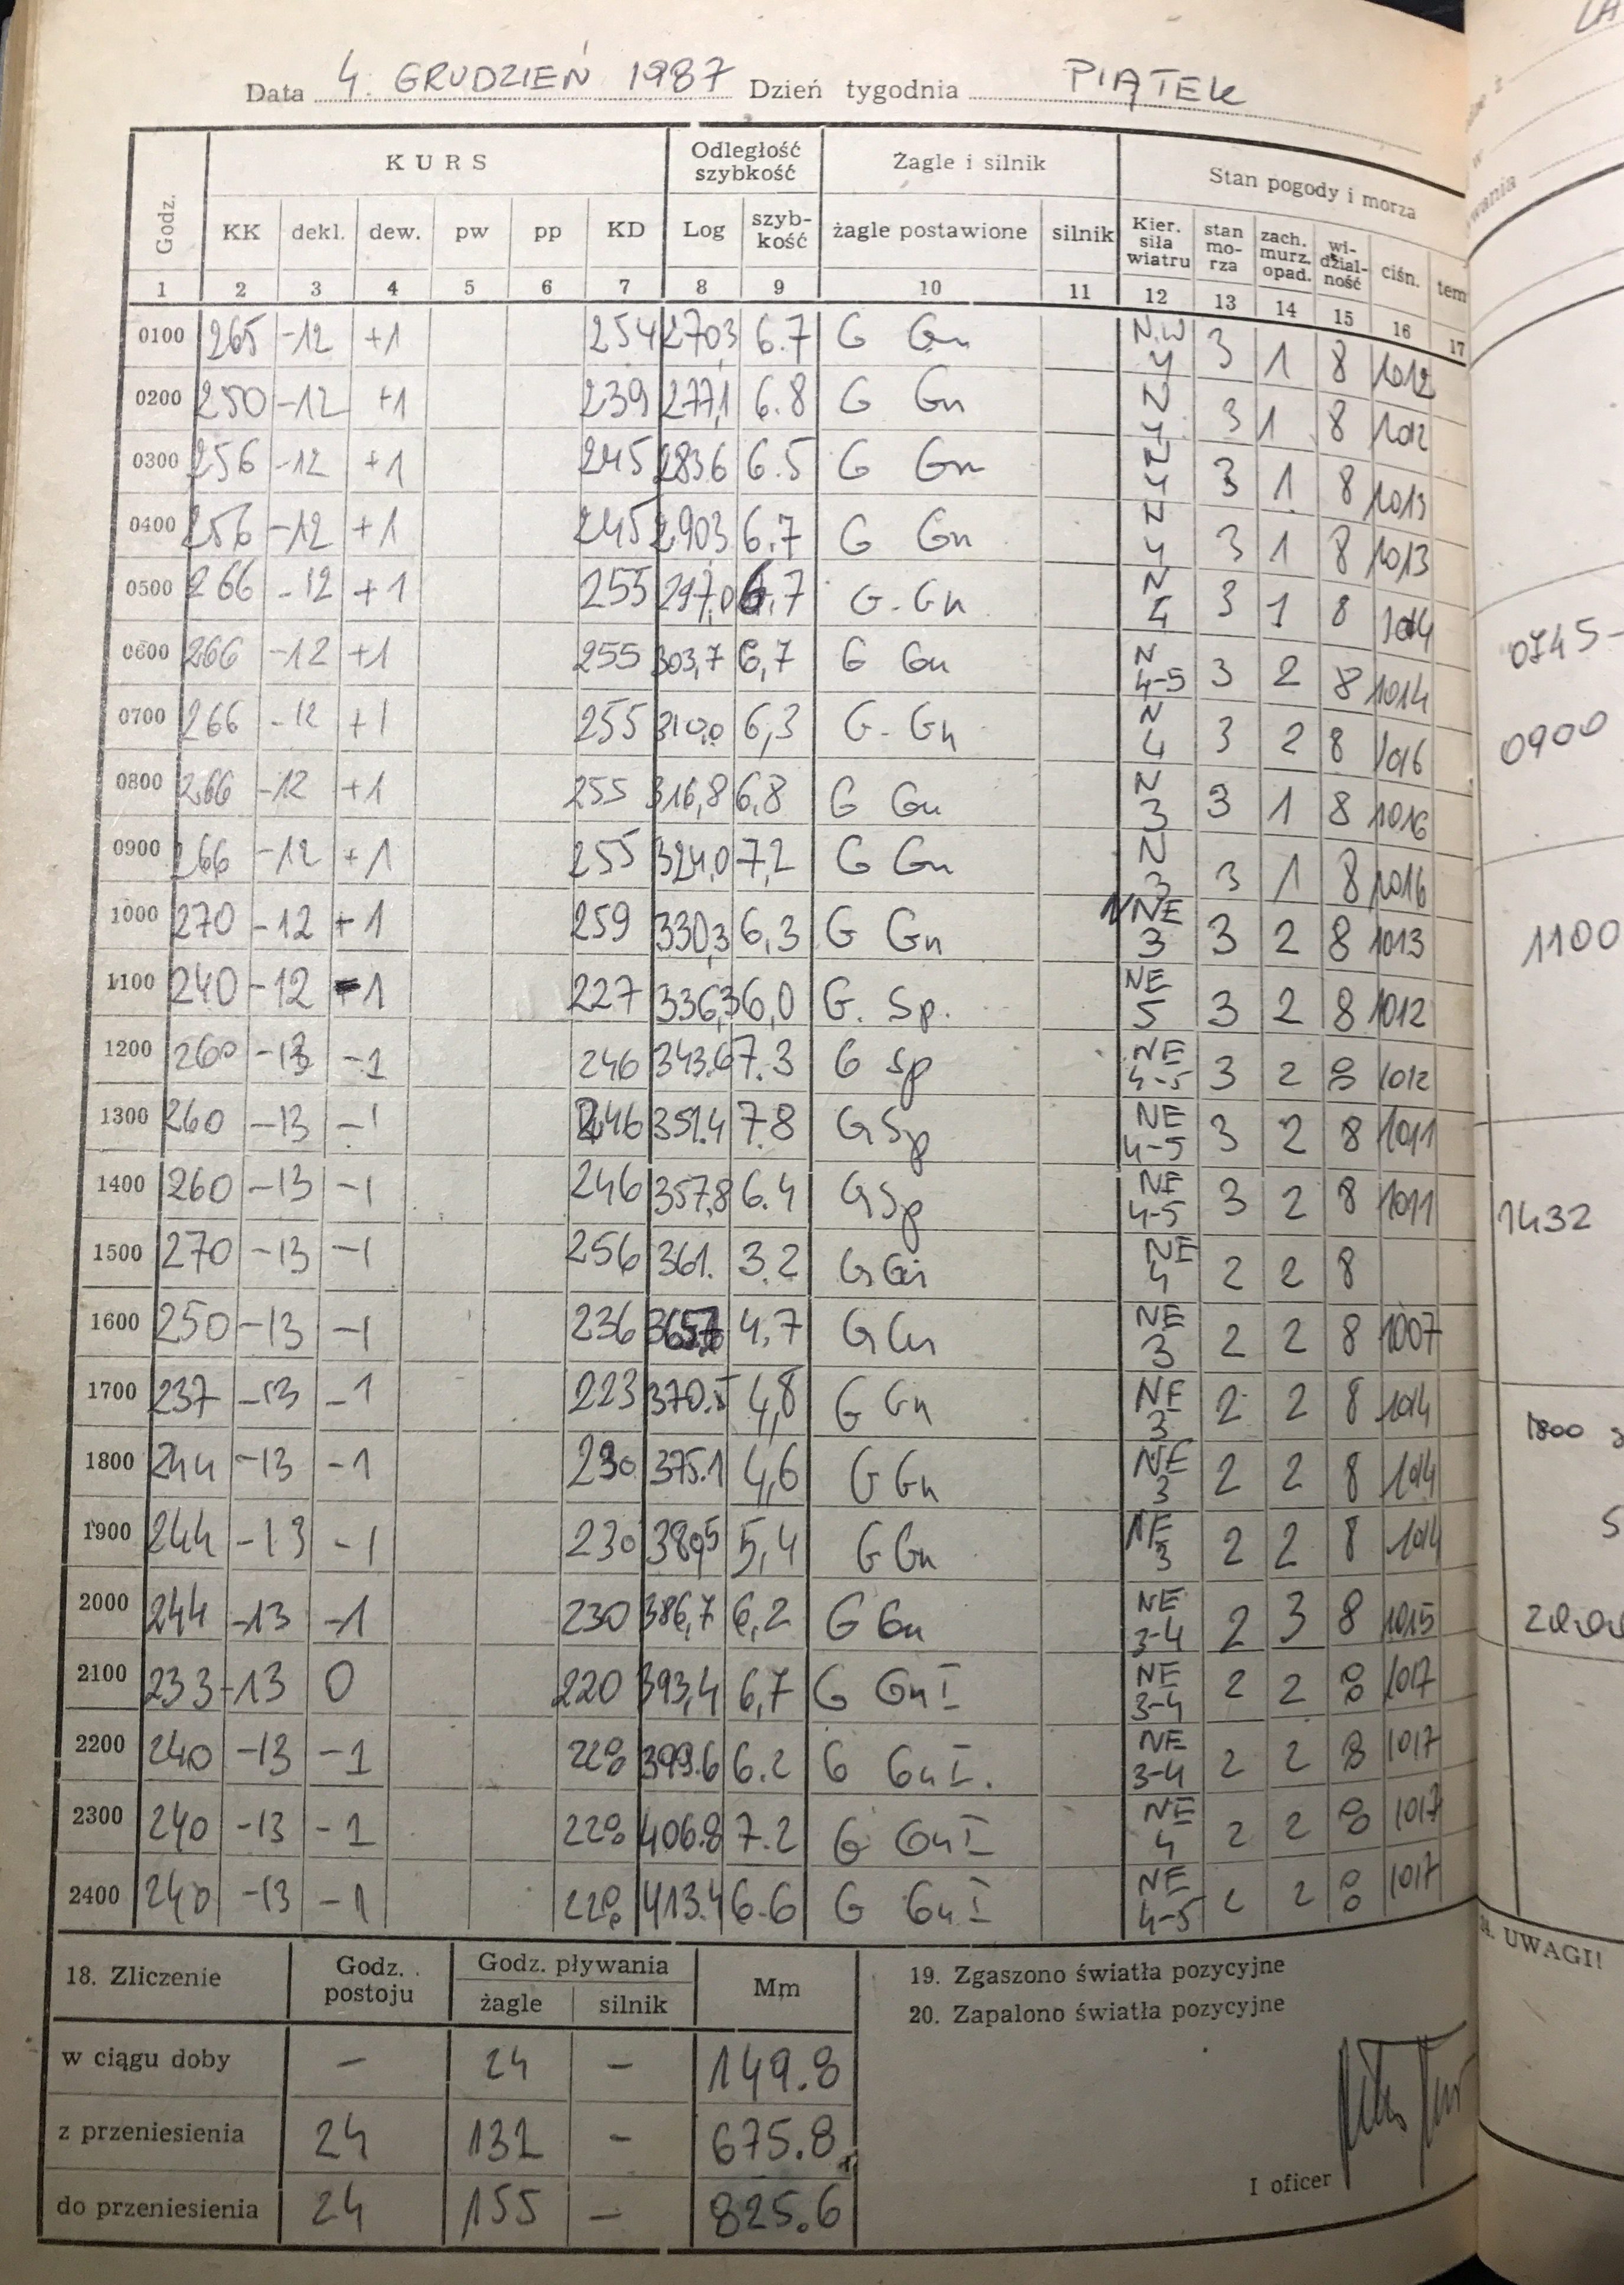 Data 4. GRUDZIEŃ 1987 Dzień tygodnia PIĄTEK
Godz. KURS Odległość szybkość Żagle i silnik Stan pogody i morza
KK dekl. dew. pw pp KD Log szyb-kość żagle postawione silnik Kier. siła wiatru stan mo-rza zach. murz. opad. wi-dzial-ność ciśn. tem
1 2 3 4 5 6 7 8 9 10 11 12 13 14 15 16 17
0100 265 -12 +1 254 270,3 6.7 G Gn N.W 4 3 1 8 1012
0200 250 -12 +1 239 277,1 6.8 G Gn N 4 3 1 8 1012
0300 256 -12 +1 245 283.6 6.5 G Gn N 4 3 1 8 1013
0400 256 -12 +1 245 290,3 6.7 G Gn N 4 3 1 8 1013
0500 266 -12 +1 255 297,0 6,7 G-Gn N 4 3 1 8 1014
0600 266 -12 +1 255 303,7 6,7 G Gn N 4-5 3 2 8 1014
0700 266 -12 +1 255 310,0 6,3 G-Gn N 4 3 2 8 1016
0800 266 -12 +1 255 316,8 6,8 G Gn N 3 3 1 8 1016
0900 266 -12 +1 255 324,0 7,2 G Gn N 3 3 1 8 1016
1000 270 -12 +1 259 330,3 6,3 G Gn NNE 3 3 2 8 1013
1100 240 -12 -1 227 336,3 6,0 G. Sp. NE 5 3 2 8 1012
1200 260 -13 -1 246 343.6 7.3 G Sp NE 4-5 3 2 8 1012
1300 260 -13 -1 246 351.4 7.8 G Sp NE 4-5 3 2 8 1011
1400 260 -13 -1 246 357,8 6.4 G Sp NE 4-5 3 2 8 1011
1500 270 -13 -1 256 361. 3.2 G Gn NE 4 2 2 8
1600 250 -13 -1 236 365,7 4,7 G Gn NE 3 2 2 8 1007
1700 237 -13 -1 223 370.5 4,8 G Gn NE 3 2 2 8 1014
1800 244 -13 -1 230 375.1 4,6 G Gn NE 3 2 2 8 1014
1900 244 -13 -1 230 380,5 5,4 G Gn NE 3 2 2 8 1014
2000 244 -13 -1 230 386,7 6,2 G Gn NE 3-4 2 3 8 1015
2100 233 -13 0 220 393,4 6,7 G Gn I NE 3-4 2 2 8 1017
2200 240 -13 -1 399.6 6.2 G Gn I. NE 3-4 2 2 8 1017
2300 240 -13 -1 406.8 7.2 G Gn I NE 4 2 2 8 1017
2400 240 -13 -1 413.4 6.6 G Gn I NE 4-5 2 2 8 1017
18. Zliczenie Godz. postoju Godz. pływania żagle silnik Mm
w ciągu doby - 24 - 149.8
z przeniesienia 24 131 - 675.8
do przeniesienia 24 155 - 825.6
19. Zgaszono światła pozycyjne
20. Zapalono światła pozycyjne
I oficer
wania
0745-
0900
1100
1432
1800
UWAGI!